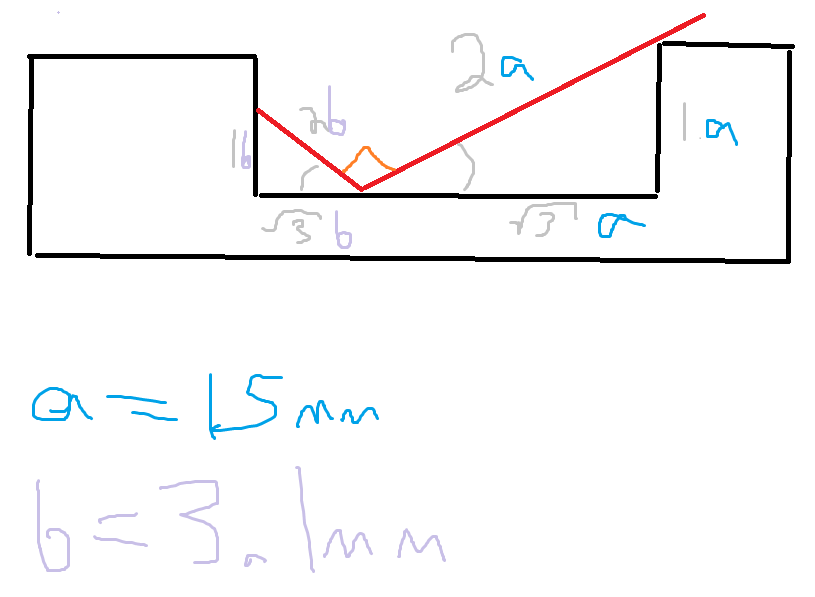 2a
2b
1b
1a
√3 b
√3 a
a = 15mm
b = 3.1mm